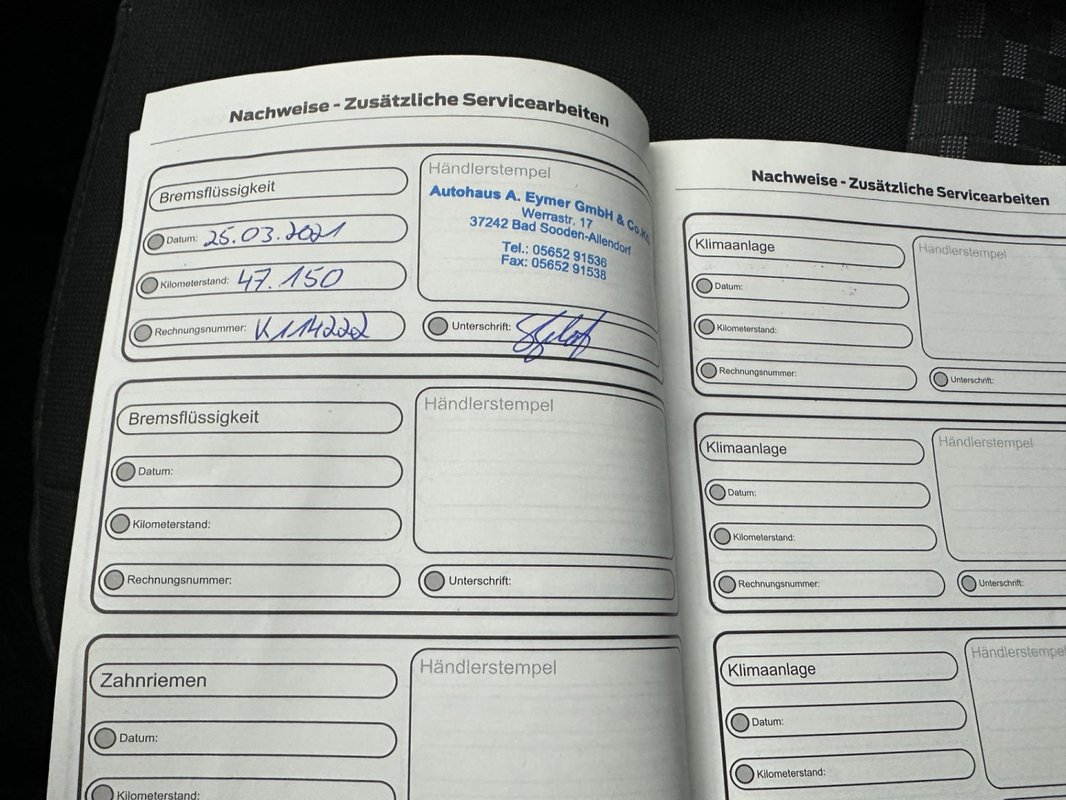 Nachweise - Zusätzliche Servicearbeiten
Bremsflüssigkeit
Datum: 25.03.2021
Kilometerstand: 47.150
Rechnungsnummer: K114222
Händlerstempel
Autohaus A. Eymer GmbH & Co.K
Werrastr. 17
37242 Bad Sooden-Allendorf
Tel.: 05652 91536
Fax: 05652 91538
Unterschrift:
Bremsflüssigkeit
Datum:
Kilometerstand:
Rechnungsnummer:
Händlerstempel
Unterschrift:
Zahnriemen
Datum:
Kilometerstand:
Händlerstempel
Nachweise - Zusätzliche Servicearbeiten
Klimaanlage
Datum:
Kilometerstand:
Rechnungsnummer:
Händlerstempel
Unterschrift:
Klimaanlage
Datum:
Kilometerstand:
Rechnungsnummer:
Händlerstempel
Unterschrift:
Klimaanlage
Datum:
Kilometerstand:
Händlerstempel